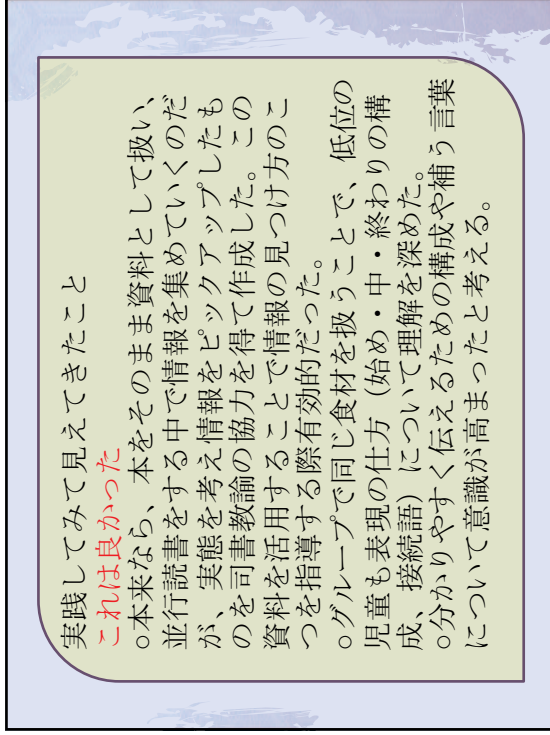 実践してみて見えてきたこと
これは良かった
○本来なら、本をそのまま資料として扱い、
並行読書をする中で情報を集めていくのだ
が、実態を考え情報をピックアップしたも
のを司書教諭の協力を得て作成した。この
資料を活用することで情報の見つけ方のこ
つを指導する際有効的だった。
○グループで同じ食材を扱うことで、低位の
児童も表現の仕方（始め・中・終わりの構
成、接続語）について理解を深めた。
○分かりやすく伝えるための構成や補う言葉
について意識が高まったと考える。